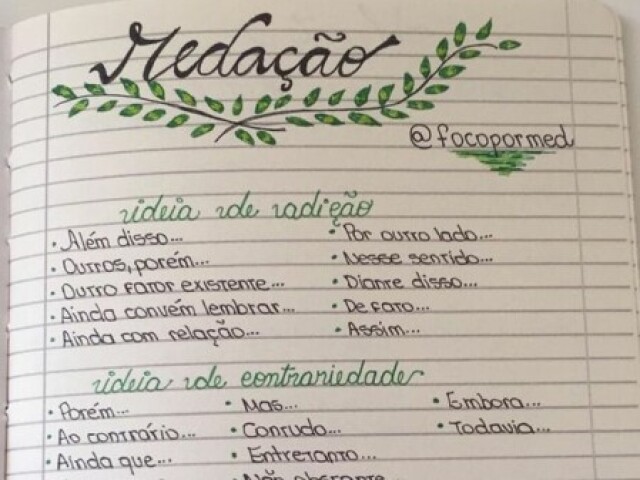 Redação
@focopormed
ideia de adição
• Além disso...
• Outros, porém...
• Outro fator existente...
• Ainda convém lembrar...
• Ainda com relação...
• Por outro lado...
• Nesse sentido...
• Diante disso...
• De fato...
• Assim...
ideia de contrariedade
• Porém...
• Ao contrário...
• Ainda que...
• Mas...
• Contudo...
• Entretanto...
• Não obstante...
• Embora...
• Todavia...